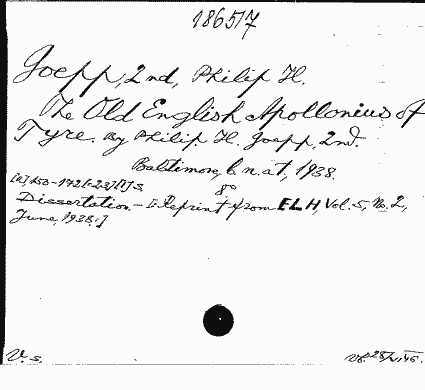 186517
Goepp, 2nd, Philip H.
The Old English Apollonius of
Tyre. By Philip H. Goepp, 2nd.
Baltimore, 1938.
8°
Dissertation. - [Reprint from ELH, Vol. 5, No. 2,
June, 1938.]
V. s.